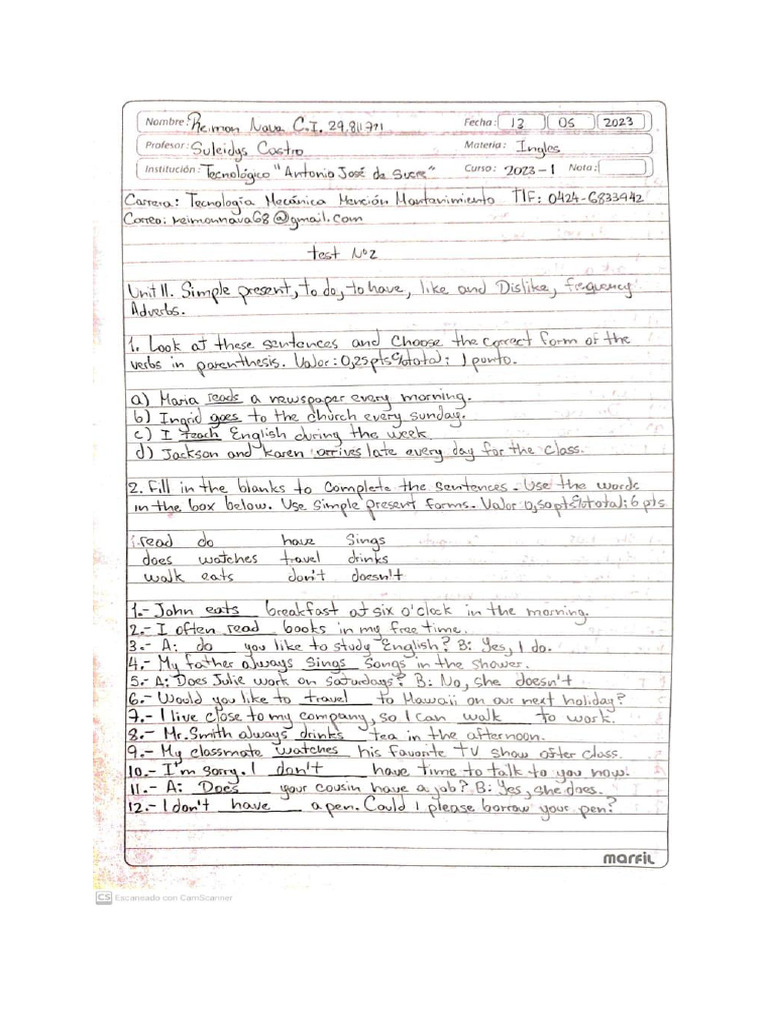 Nombre: Reimon Nava C.I. 29.811771 Fecha: 13 05 2023
Profesor: Suleidys Castro Materia: Ingles
Institución: Tecnológico "Antonio José de Sucre" Curso: 2023-1 Nota:
Carrera: Tecnología Mecánica Mención Mantenimiento Tlf: 0424-6833942
Correo: reimonnava68@gmail.com
test Nº2
Unit II. Simple present, to do, to have, like and Dislike, frequency
Adverbs.
1. Look at these sentences and Choose the correct form of the
verbs in parenthesis. Valor: 0,25pts c/u total: 1 punto.
a) Maria reads a newspaper every morning.
b) Ingrid goes to the church every sunday.
c) I teach English during the week.
d) Jackson and Karen arrives late every day for the class.
2. Fill in the blanks to complete the sentences. Use the words
in the box below. Use simple present forms. Valor 0,50pts c/u total: 6 pts
read do have Sings
does watches travel drinks
walk eats don't doesn't
1.- John eats breakfast at six o'clock in the morning.
2.- I often read books in my free time.
3.- A: do you like to study English? B: Yes, I do.
4.- My father always Sings Songs in the shower.
5.- A: Does Julie work on Saturdays? B: No, she doesn't
6.- Would you like to travel to Hawaii on our next holiday?
7.- I live close to my company, so I can walk to work.
8.- Mr. Smith always drinks tea in the afternoon.
9.- My classmate watches his favorite TV show after class.
10.- I'm sorry. I don't have time to talk to you now.
11.- A: Does your cousin have a job? B: Yes, she does.
12.- I don't have a pen. Could I please borrow your pen?
marfil
CS Escaneado con CamScanner